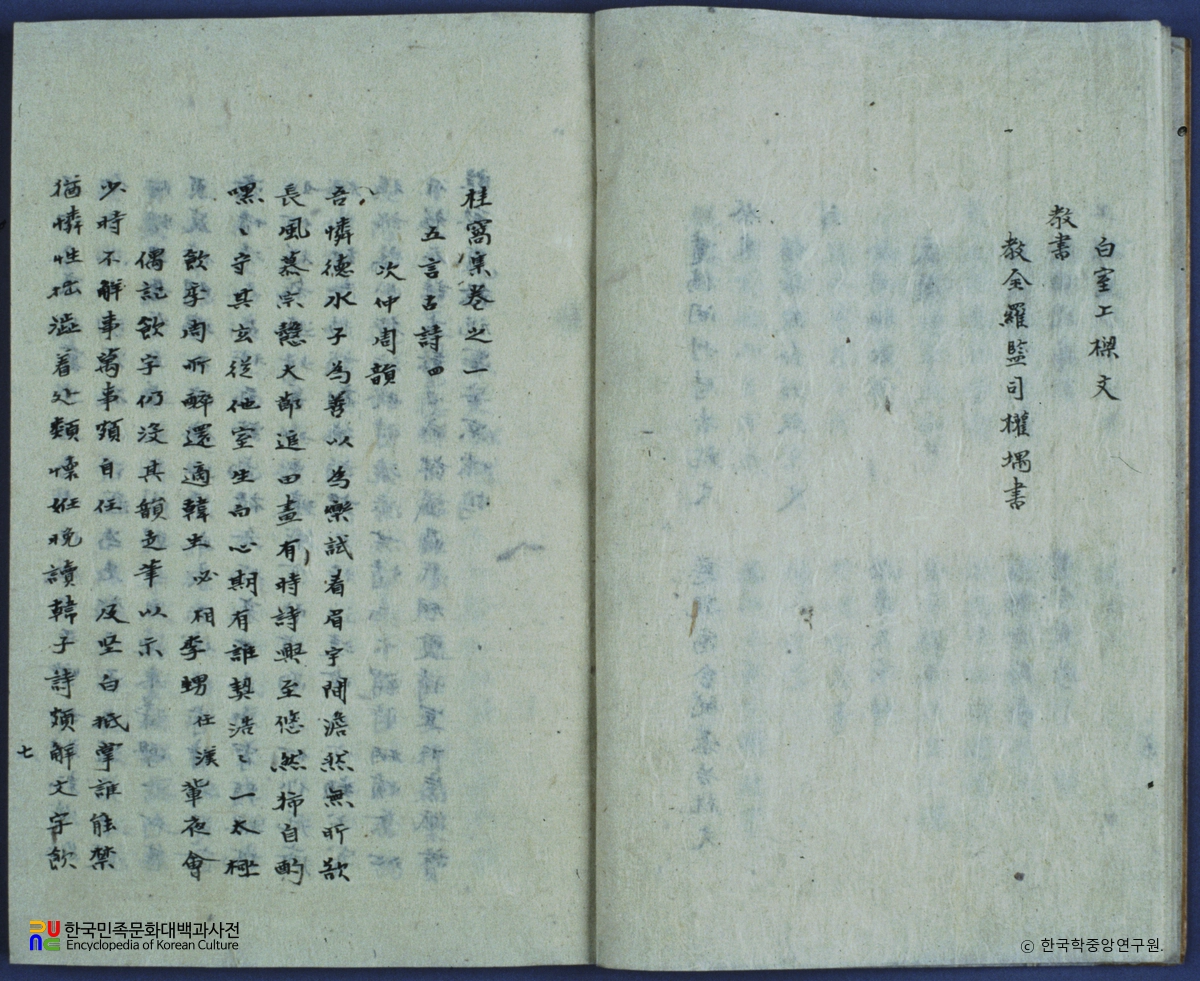 白室上樑文
教書
教全羅監司權堣書
桂窩集卷之一
五言古詩四
次仲周韻
吾憐德水子為善以為樂試看眉宇間澹然無所欲
長風慕宗慤大節追田畫有時詩興至悠然掃自酌
嘿〻守其玄從他室生白心期有誰契浩〻一太極
飲李周所醉還適韓生必相李甥 任 漢 輩夜會
偶記飲字仍沒其韻走筆以示
少時不解事萬事頗自任 及堅白抵掌誰能禁
猶憐性拙澁着處類懷妊晚讀韓子詩頗解文字飲
七
한국민족문화대백과사전
Encyclopedia of Korean Culture
© 한국학중앙연구원.